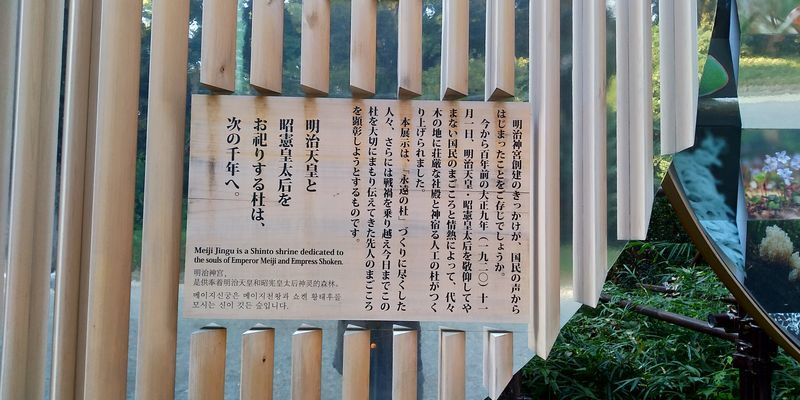 明治神宮創建のきっかけが、国民の声から
はじまったことをご存じでしょうか。
今から百年前の大正九年（一九二〇）十一
月一日、明治天皇・昭憲皇太后を敬仰してや
まない国民のまごころと情熱によって、代々
木の地に荘厳な社殿と神宿る人工の杜がつく
り上げられました。
本展示は、「永遠の杜」づくりに尽くした
人々、さらには戦禍を乗り越え今日までこの
杜を大切にまもり伝えてきた先人のまごころ
を顕彰しようとするものです。
明治天皇と
昭憲皇太后を
お祀りする杜は、
次の千年へ。
Meiji Jingu is a Shinto shrine dedicated to
the souls of Emperor Meiji and Empress Shoken.
明治神宫，
是供奉着明治天皇和昭宪皇太后神灵的森林。
메이지신궁은 메이지천왕과 쇼켄 황태후를
모시는 신이 깃든 숲입니다.